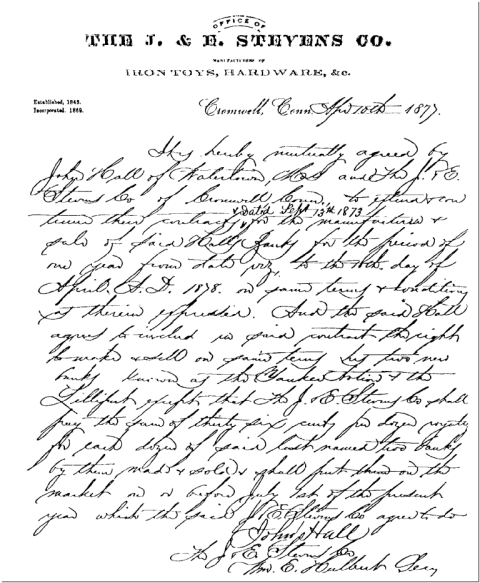 OFFICE OF
THE J. & E. STEVENS CO.
MANUFACTURERS OF
IRON TOYS, HARDWARE, &c.
Established, 1843.
Incorporated, 1869.
Cromwell, Conn. Apr 10th 1877.
It is hereby mutually agreed by
John Hall of Watertown, Mass and The J. & E.
Stevens Co of Cromwell Conn, to extend & con
& Dated Sept 13th 1873
tinue their contract for the manufacture &
sale of said Hall's Banks for the period of
one year from date viz, to the 10th day of
April A.D. 1878. on same terms & conditions
as therein expressed. And the said Hall
agrees to include in said contract the right
to make & sell on same terms his two new
banks known as the Yankee Notion & the
Lilliput except that The J. & E. Stevens Co shall
pay the sum of thirty six cents per dozen royalty
for each dozen of said last named two banks
by them made & sold & shall put them on the
market on or before July 1st of the present
year which the said J. & E. Stevens Co agree to do
John Hall
The J & E. Stevens Co
Wm. E. Hulbert Secy